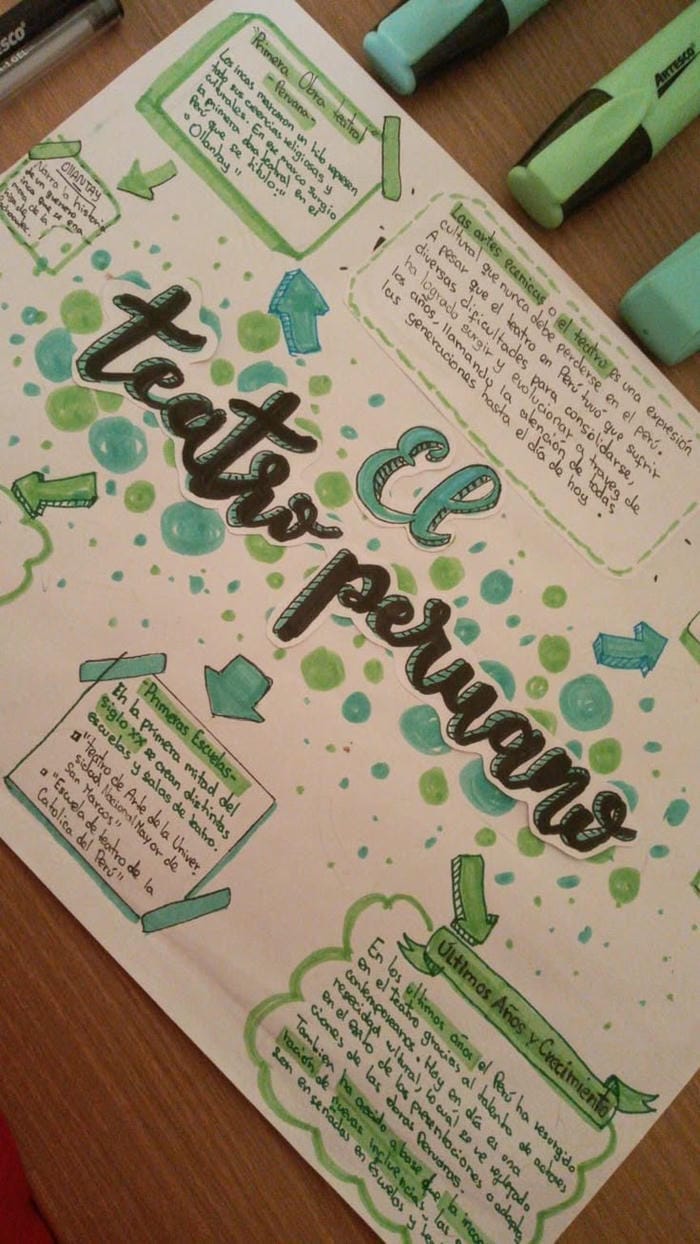 Primera Obra teatral
-Peruana-
Los incas marcaron un hito represen
todo sus creencias religiosas y
culturales. En ese marco surgio
la primera obra teatral en el
Perú que se título:
"Ollantay"
OLLANTAY
Narra la historia
de un guerrero
inca que se ena
mora de la
hija de
Pachacutec.
Las artes escenicas o el teatro es una expresión
cultural que nunca debe perderse en el perú.
A pesar que el teatro en Perú tuvó que sufrir
diversas dificultades para consolidarse,
ha logrado surgir y evolucionar a trayez de
los años, llamando la atención de todas
las generaciones hasta el día de hoy.
El
teatro
peruano
Primeras Escuelas-
En la primera mitad del
siglo XX se crean distintas
escuelas y salas de teatro.
"Teatro de Arte de la Univer-
sidad Nacional Mayor de
San Marcos"
"Escuela de teatro de la
Católica del Perú"
Últimos Años y Crecimiento
En los últimos años el Perú ha resurgido
en el Teatro gracias al talento de actores
contemporaneos. Hoy en día es una
necesidad cultural, lo cuál se ve reflejado
en el éxito de las presentaciones o adapta
ciones de las obras Peruanas.
También ha crecido a base de la incor
ración de nuevas influencias, las
son enseñadas en Escuelas y
ARTESCO